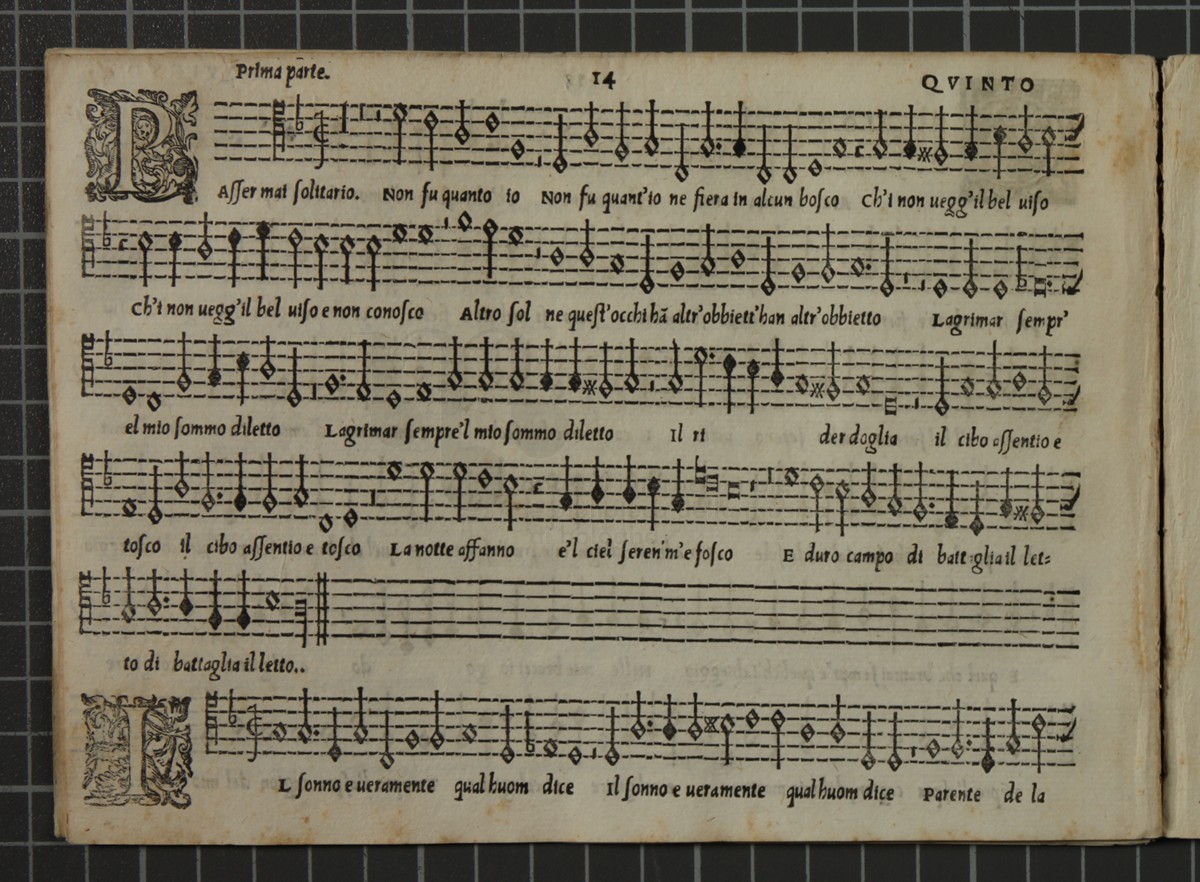 Prima parte. 14 QVINTO
PAsser mai solitario. Non fu quanto io Non fu quant'io ne fiera in alcun bosco Ch'i non uegg'il bel uiso
Ch'i non uegg'il bel uiso e non conosco Altro sol ne quest'occhi hã altr'obbiett'han altr'obbietto Lagrimar sempr'
el mio sommo diletto Lagrimar sempre'l mio sommo diletto Il ri der doglia il cibo assentio e
tosco il cibo assentio e tosco La notte affanno e'l ciel seren'm'e fosco E duro campo di battaglia il let=
to di battaglia il letto..
IL sonno e ueramente qual huom dice Il sonno e ueramente qual huom dice Parente de la